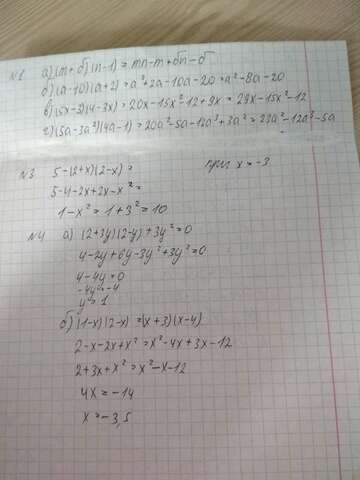 №2 а) (m+б)(n-1) = mn-m+бn-б
б) (а-10)(а+2) = а²+2а-10а-20 = а²-8а-20
в) (5x-3)(4-3x) = 20x-15x²-12+9x = 29x-15x²-12
г) (5а-3а²)(4а-1) = 20а²-5а-12а³+3а² = 23а²-12а³-5а
№3 5-(2+x)(2-x) = при x=-3
5-4-2x+2x-x² =
1-x² = 1+3² = 10
№4 а) (2+3y)(2-y)+3y²=0
4-2y+6y-3y²+3y²=0
4-4y=0
-4y=-4
y=1
б) (1-x)(2-x) = (x+3)(x-4)
2-x-2x+x² = x²-4x+3x-12
2+3x+x² = x²-x-12
4x=-14
x=-3,5